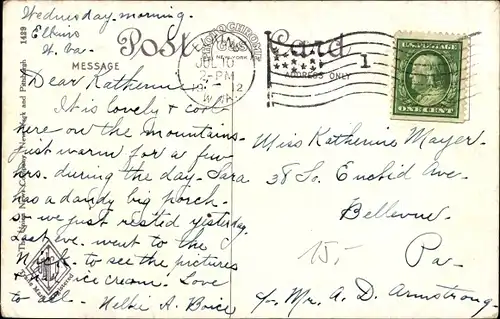 Wednesday morning.
Elkins
W. Va.
Post Card
PHOTOCHROME
NEW YORK
MESSAGE
ADDRESS ONLY
JUL 10
2-PM
1912
W. VA.
1
U.S. POSTAGE
ONE CENT
Dear Katherine -
It is lovely & cool
here on the mountains.
just warm for a few
hrs. during the day. Sara
has a dandy big porch
so we just rested yesterday.
Last eve. went to the
to see the pictures
& ice cream. Love
to all - Nellie A. Boice
Miss Katherine Mayer.
38 So. Euclid Ave.
Bellevue
15.- Pa.
c/o Mr. A. D. Armstrong.
1429
News Company, and Pittsburgh
Trade Mark Registered